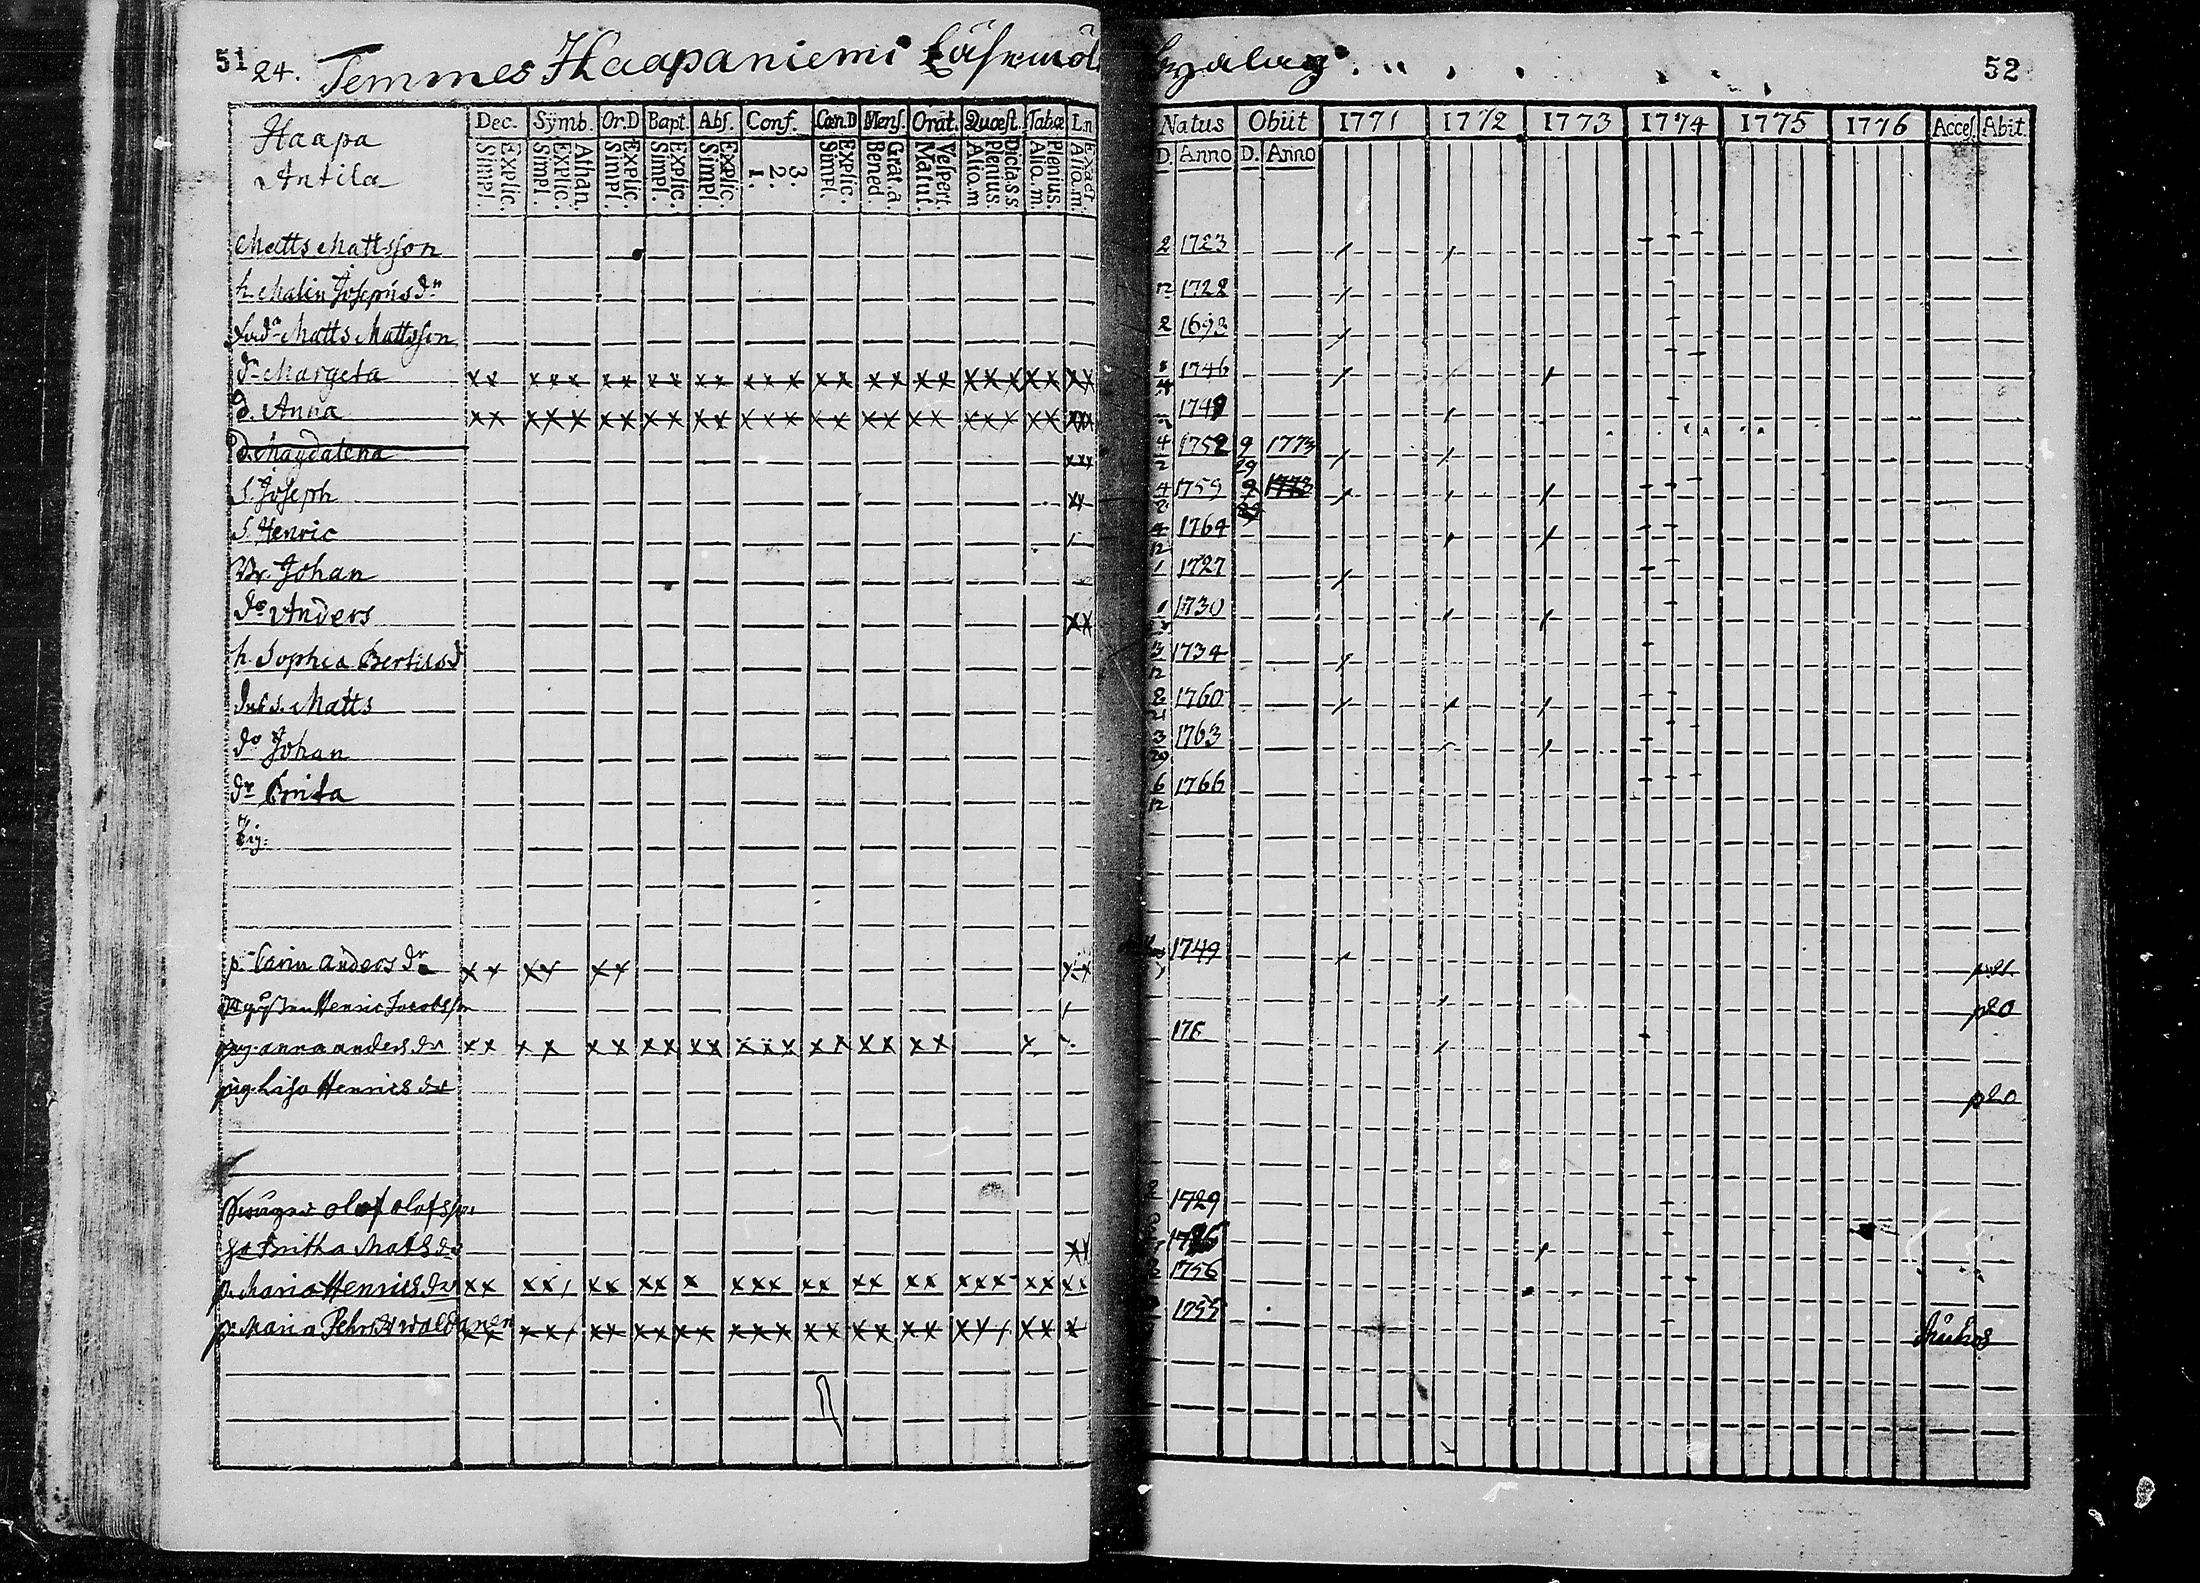 51 24. Temmes Haapaniemi Byalag 52
Haapa
Antila
Dec. Symb. Or.D Bapt Abs. Conf. Cœn.D Mens. Orat. Quæst. Tabæ Ln Natus Obiit 1771 1772 1773 1774 1775 1776 Acces. Abit.
Explic. Simpl. Athan. Explic. Simpl. Explic. Simpl. Explic. Simpl. Explic. Simpl. 3. 2. 1. Explic. Simpl. Grat. a Bened. Vespert. Matut. Dicta.s.s Plenius. Alio.m Plenius. Alio.m. Exact Alio.m. D. Anno D. Anno
Matts Mattsson 2 1723
h. Malin Josephsdr 12 1722
Matts Mattsson 2 1693
dr Margeta xx xxx xx xx xx xxx xx xx xx xxx xx xx 1746
d. Anna xx xxx xx xx xx xxx xx xx xx xxx xx xxx 174
d. Magdalena xxx 4 2 1752 9 29 1773
S. Joseph xx 4 2 1759 9 1773
S. Henric 4 12 1764
Br. Johan 1 1727
do Anders xx 1 1730
h. Sophia Bertilsd 3 12 1734
s. Matts 2 21 1760
do Johan 3 29 1763
dr Brita 6 12 1766
p. Carin Andersdr xx xx xx xx 1749 p21
Henric Jacobsson p20
pig. anna andersdr xx xx xx xx xx xxx xx xx xx x 17
pig. Lisa Henricsdr p20
olof olofsson 1729
Britha Matsdr xx 17
p. Maria Henricsdr xx xx xx xx x xxx xx xx xx xxx xx xx 1756
p. Maria Pehrsdr xx xx xx xx xx xxx xx xx xx xx xx x 1755 Muhos